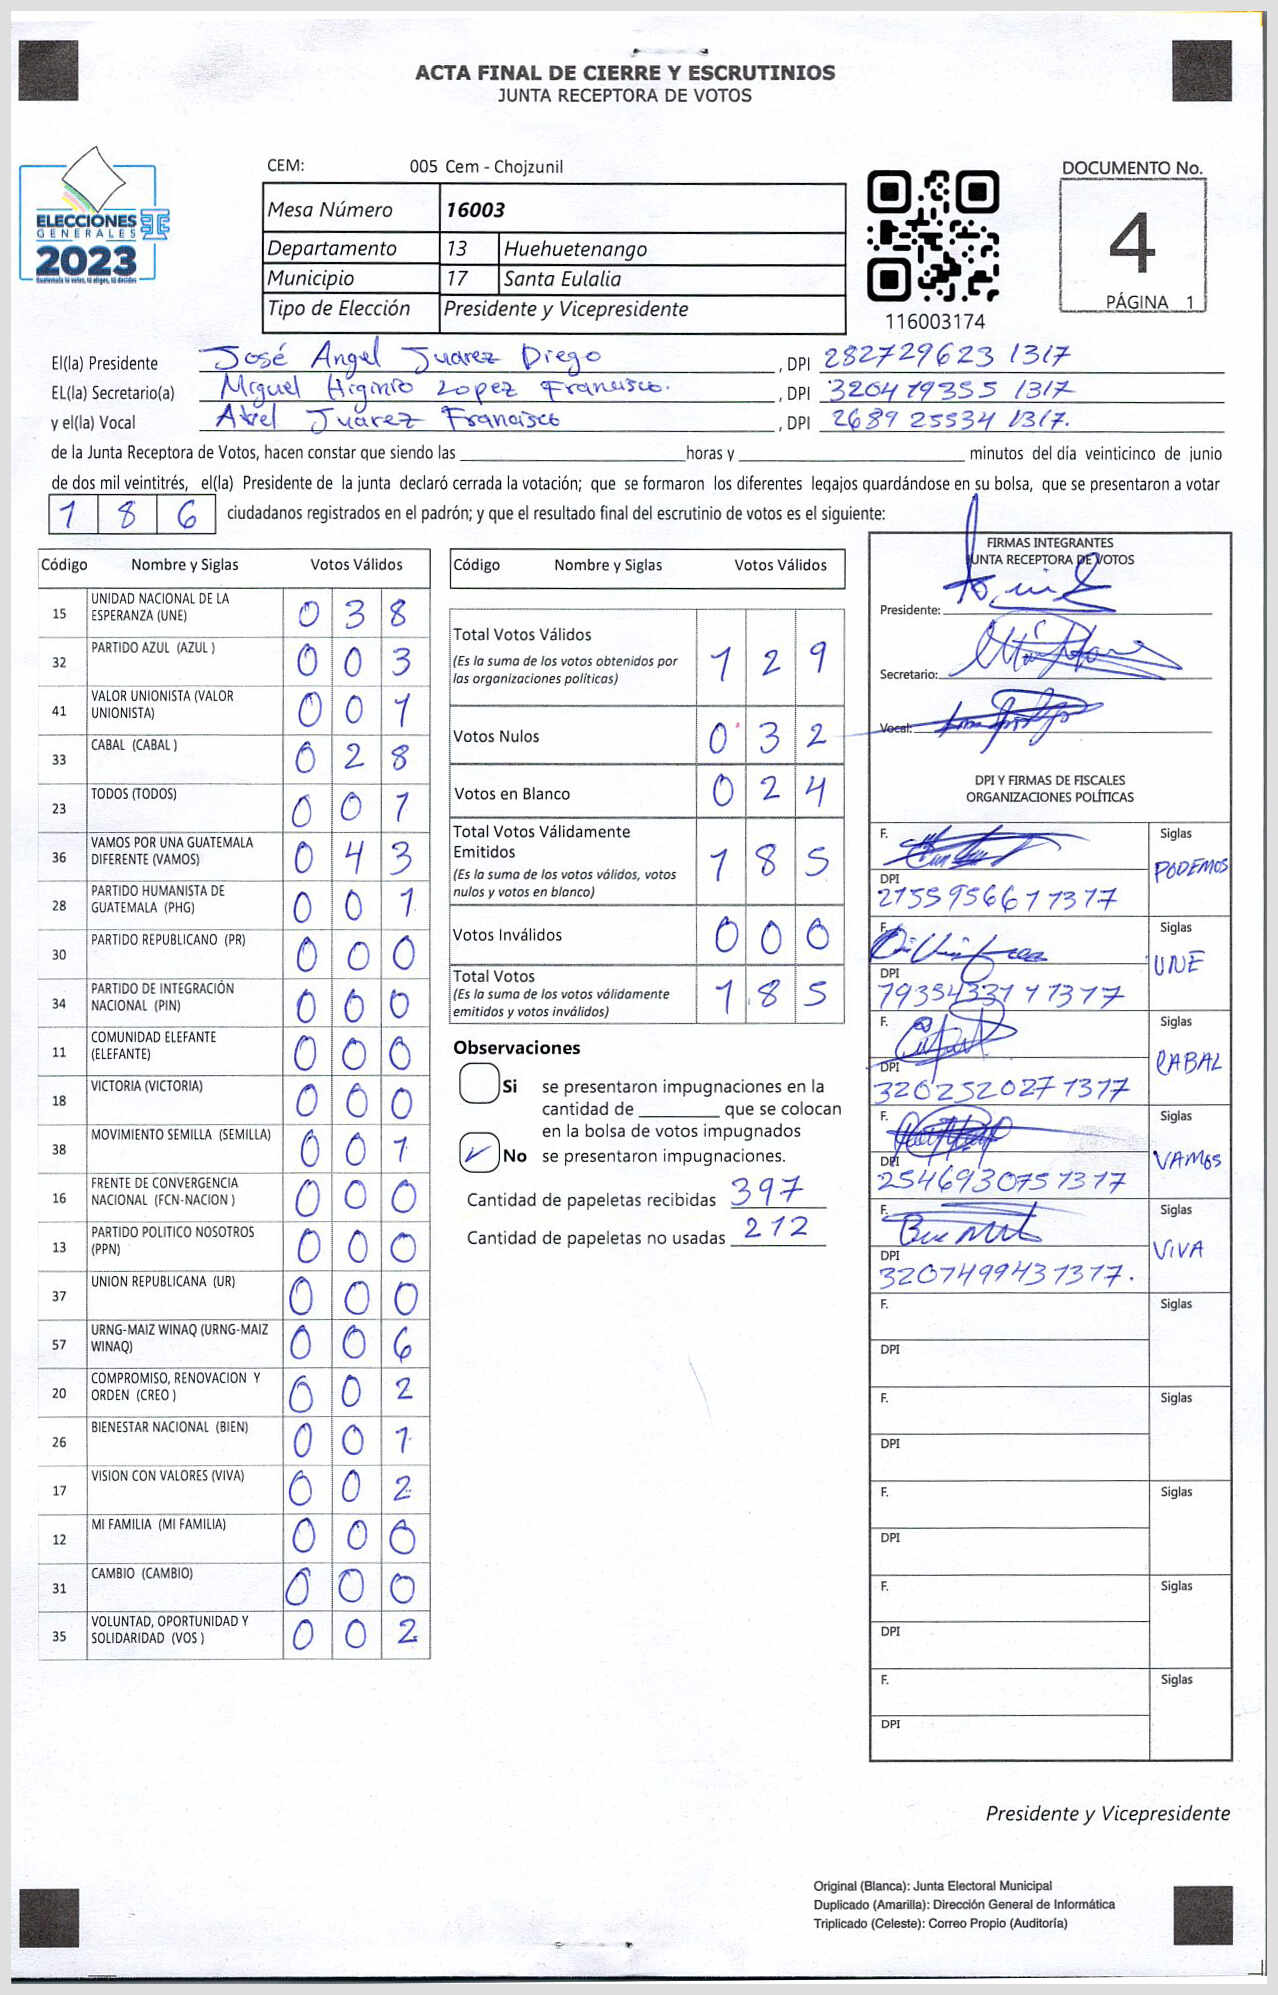 ACTA FINAL DE CIERRE Y ESCRUTINIOS
JUNTA RECEPTORA DE VOTOS
ELECCIONES
GENERALES
2023
CEM: 005 Cem - Chojzunil
Mesa Número 16003
Departamento 13 Huehuetenango
Municipio 17 Santa Eulalia
Tipo de Elección Presidente y Vicepresidente
116003174
DOCUMENTO No.
4
PÁGINA 1
El(la) Presidente José Angel Juarez Diego , DPI 282729623 1317
EL(la) Secretario(a) Miguel Higinio Lopez Francisco. , DPI 320419355 1317
y el(la) Vocal Juárez Francisco , DPI 2689 25534 1317.
de la Junta Receptora de Votos, hacen constar que siendo las horas y minutos del día veinticinco de junio
de dos mil veintitrés, el(la) Presidente de la junta declaró cerrada la votación; que se formaron los diferentes legajos guardándose en su bolsa, que se presentaron a votar
1 8 6 ciudadanos registrados en el padrón; y que el resultado final del escrutinio de votos es el siguiente:
Código Nombre y Siglas Votos Válidos
15 UNIDAD NACIONAL DE LA ESPERANZA (UNE) 0 3 8
32 PARTIDO AZUL (AZUL ) 0 0 3
41 VALOR UNIONISTA (VALOR UNIONISTA) 0 0 1
33 CABAL (CABAL ) 0 2 8
23 TODOS (TODOS) 0 0 1
36 VAMOS POR UNA GUATEMALA DIFERENTE (VAMOS) 0 4 3
28 PARTIDO HUMANISTA DE GUATEMALA (PHG) 0 0 1
30 PARTIDO REPUBLICANO (PR) 0 0 0
34 PARTIDO DE INTEGRACIÓN NACIONAL (PIN) 0 0 0
11 COMUNIDAD ELEFANTE (ELEFANTE) 0 0 0
18 VICTORIA (VICTORIA) 0 0 0
38 MOVIMIENTO SEMILLA (SEMILLA) 0 0 1
16 FRENTE DE CONVERGENCIA NACIONAL (FCN-NACION ) 0 0 0
13 PARTIDO POLITICO NOSOTROS (PPN) 0 0 0
37 UNION REPUBLICANA (UR) 0 0 0
57 URNG-MAIZ WINAQ (URNG-MAIZ WINAQ) 0 0 6
20 COMPROMISO, RENOVACION Y ORDEN (CREO ) 0 0 2
26 BIENESTAR NACIONAL (BIEN) 0 0 1
17 VISION CON VALORES (VIVA) 0 0 2
12 MI FAMILIA (MI FAMILIA) 0 0 0
31 CAMBIO (CAMBIO) 0 0 0
35 VOLUNTAD, OPORTUNIDAD Y SOLIDARIDAD (VOS ) 0 0 2
Código Nombre y Siglas Votos Válidos
Total Votos Válidos 1 2 9
(Es la suma de los votos obtenidos por
las organizaciones políticas)
Votos Nulos 0 3 2
Votos en Blanco 0 2 4
Total Votos Válidamente
Emitidos 1 8 5
(Es la suma de los votos válidos, votos
nulos y votos en blanco)
Votos Inválidos 0 0 0
Total Votos 1 8 5
(Es la suma de los votos válidamente
emitidos y votos inválidos)
Observaciones
Si se presentaron impugnaciones en la
cantidad de que se colocan
en la bolsa de votos impugnados
No se presentaron impugnaciones.
Cantidad de papeletas recibidas 397
Cantidad de papeletas no usadas 212
FIRMAS INTEGRANTES
JUNTA RECEPTORA DE VOTOS
Presidente:
Secretario:
Vocal:
DPI Y FIRMAS DE FISCALES
ORGANIZACIONES POLÍTICAS
F. Siglas
PODEMOS
DPI
2155956671317
F. Siglas
UNE
DPI
F. Siglas
CABAL
DPI
3202520271317
F. Siglas
VAMOS
DPI
2546930751317
F. Siglas
VIVA
DPI
3207499431317.
F. Siglas
DPI
F. Siglas
DPI
F. Siglas
DPI
F. Siglas
DPI
F. Siglas
DPI
Presidente y Vicepresidente
Original (Blanca): Junta Electoral Municipal
Duplicado (Amarilla): Dirección General de Informática
Triplicado (Celeste): Correo Propio (Auditoría)